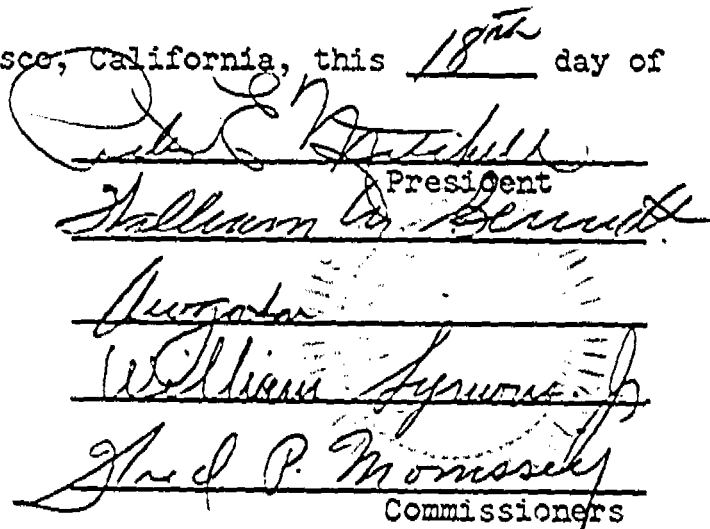 sco, California, this 18th day of
E. Mitchell
President
William M. Bennett
William Symons. Jr
Fred P. Morrissey
Commissioners